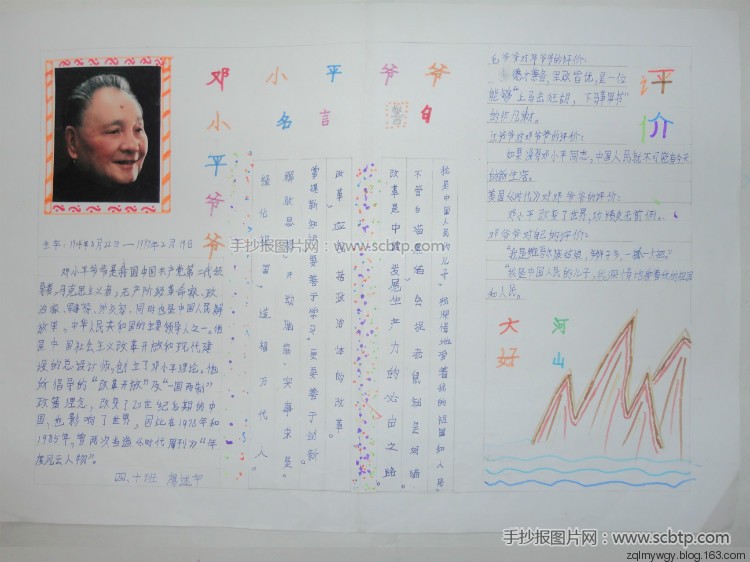 邓小平爷爷
邓小平爷爷
名言警句
生卒：1904年8月22日——1997年2月19日
邓小平爷爷是我国中国共产党第二代领
导者，马克思主义者，无产阶级革命家、政
治家、军事家、外交家，同时也是中国人民解
放军、中华人民共和国的主要领导人之一。他
是中国社会主义改革开放和现代建
设的总设计师，创立了邓小平理论。他
所倡导的“改革开放”及“一国两制”
政策理念，改变了20世纪后期的中
国，也影响了世界，因此在1978年和
1985年，曾两次当选《时代周刊》“年
度风云人物”。
四、十班
我是中国人民的儿子，我深情地爱着我的祖国和人民。
不管白猫黑猫，会捉老鼠就是好猫
改革是中国发展生产力的必由之路。
改革，应包括政治体制改革。
掌握新知识，要善于学习，更要善于创新。
解放思想，开动脑筋，实事求是。
绿化祖国，造福万代人。
评价
毛爷爷对邓爷爷的评价：
能够“上马击狂胡，下马草军书”
江爷爷对邓爷爷的评价：
如果没有邓小平同志，中国人民就不可能有今天
的新生活。
美国《时代》对邓爷爷的评价：
邓小平改变了世界，
邓爷爷对自己的评价：
“我是中国人民的儿子，我深情地爱着我的祖国
和人民。
大好
河山
手抄报图片网：www.scbtp.com
手抄报图片网：www.scbtp.com
zqlmywgy.blog.163.com